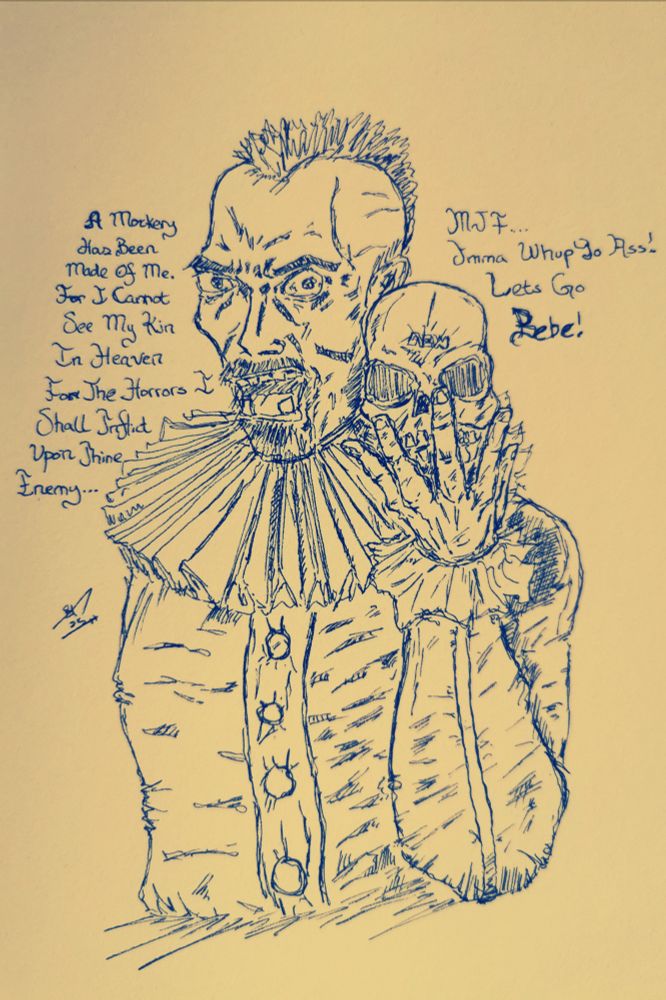 A Mockery
Has Been
Made Of Me.
For I Cannot
See My Kin
In Heaven
For The Horrors I
Shall Inflict
Upon Thine
Enemy...
MJF...
Imma Whup Yo Ass!
Lets Go
Bebe!